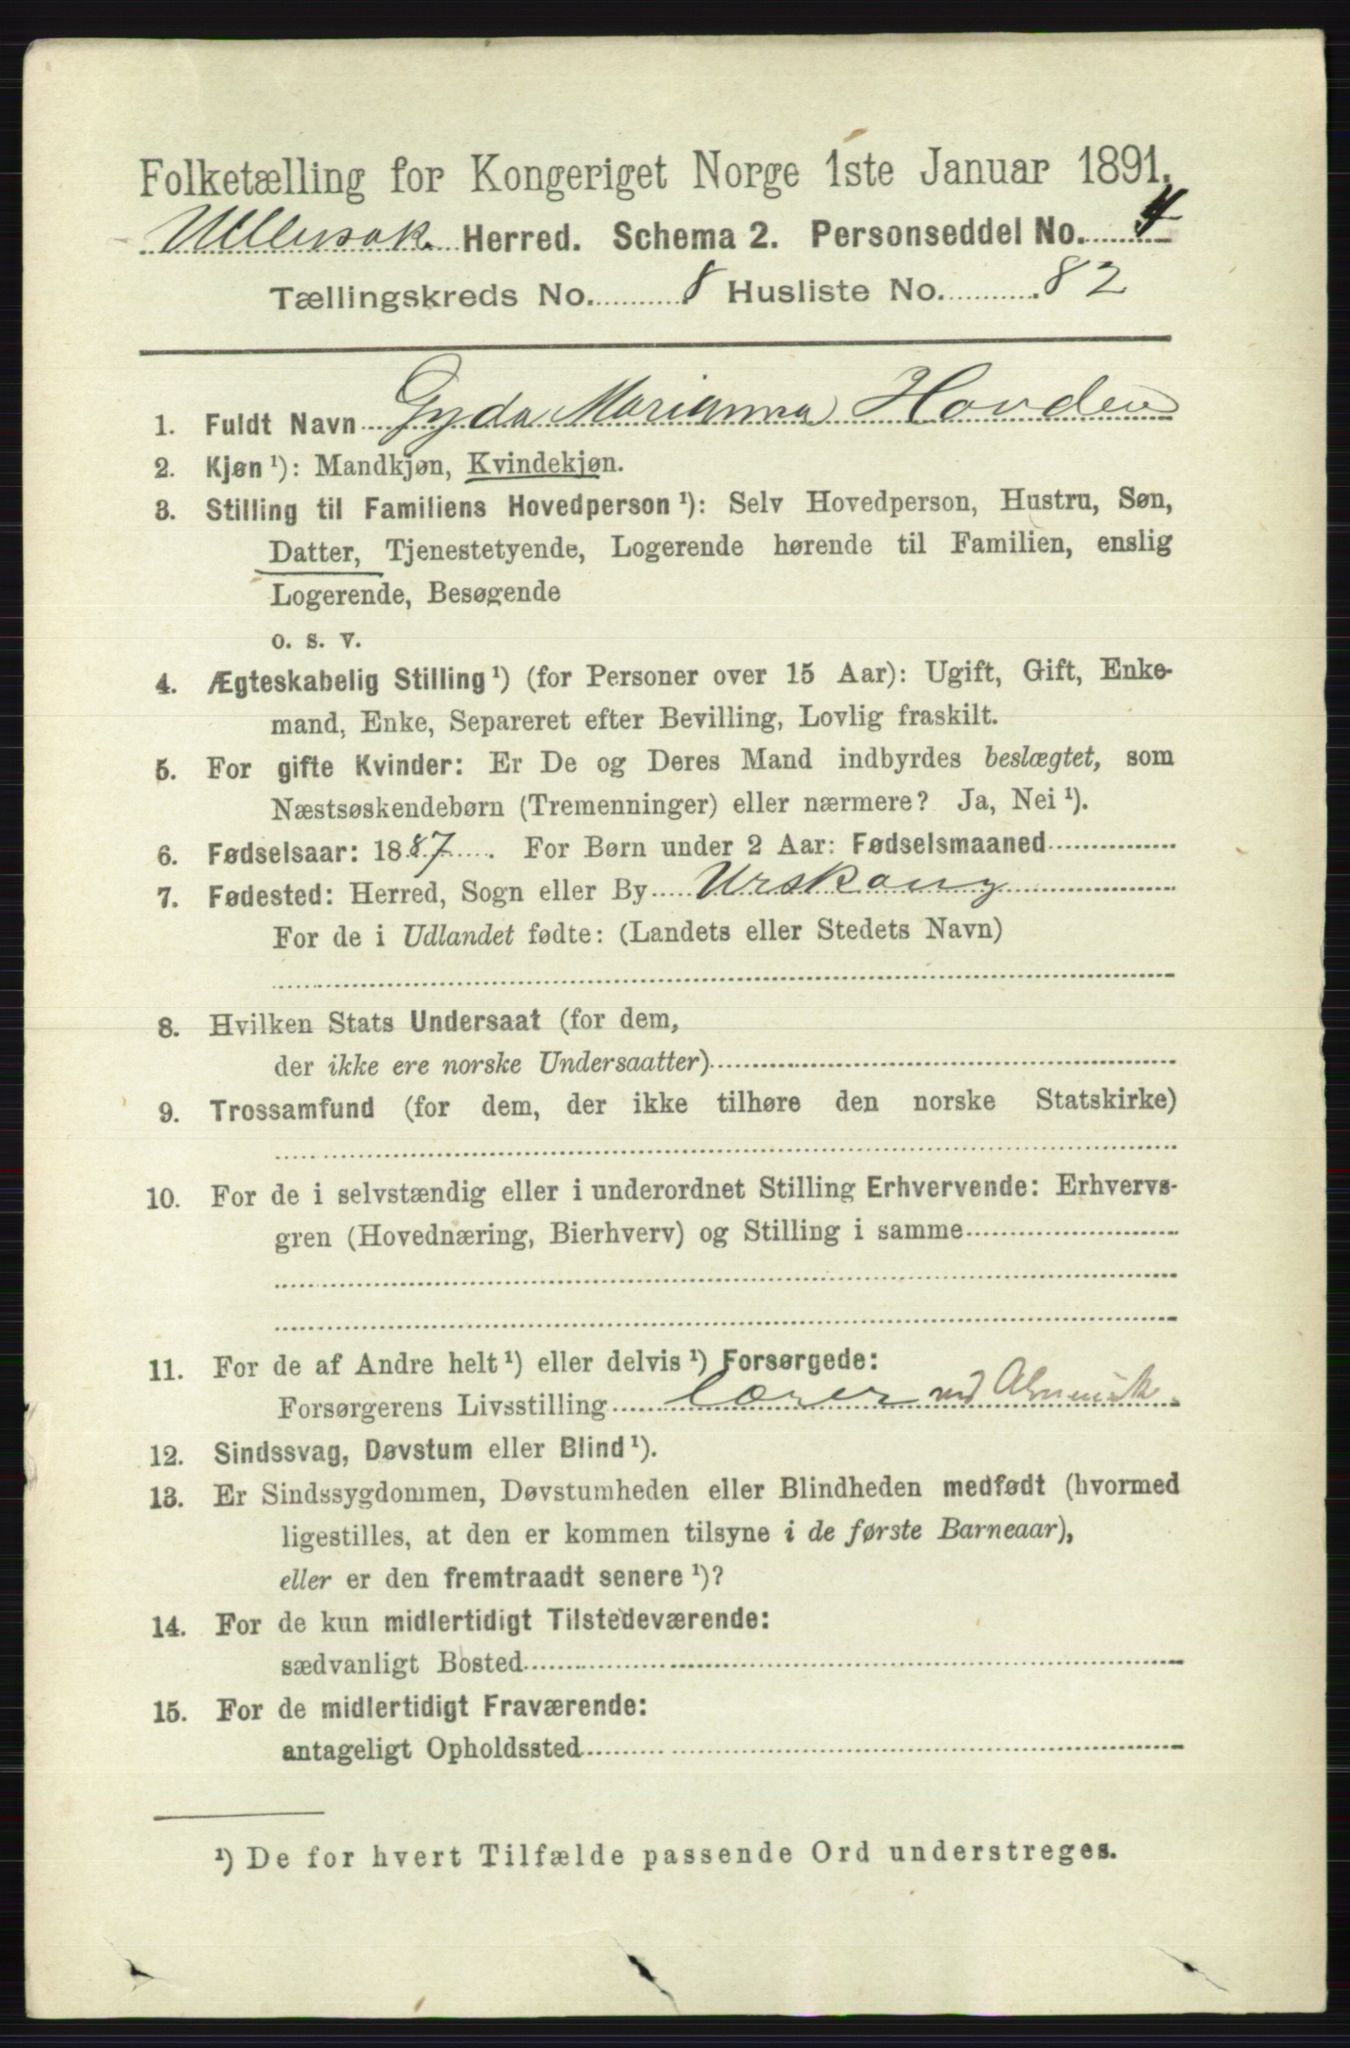 Folketælling for Kongeriget Norge 1ste Januar 1891.
Ullensak. Herred. Schema 2. Personseddel No. 4
Tællingskreds No. 8 Husliste No. 82
1. Fuldt Navn Gyda Marianna Hovden
2. Kjøn ¹): Mandkjøn, Kvindekjøn.
3. Stilling til Familiens Hovedperson ¹): Selv Hovedperson, Hustru, Søn,
Datter, Tjenestetyende, Logerende hørende til Familien, enslig
Logerende, Besøgende
o. s. v.
4. Ægteskabelig Stilling ¹) (for Personer over 15 Aar): Ugift, Gift, Enke-
mand, Enke, Separeret efter Bevilling, Lovlig fraskilt.
5. For gifte Kvinder: Er De og Deres Mand indbyrdes beslægtet, som
Næstsøskendebørn (Tremenninger) eller nærmere? Ja, Nei ¹).
6. Fødselsaar: 1887. For Børn under 2 Aar: Fødselsmaaned
7. Fødested: Herred, Sogn eller By Urskoug
For de i Udlandet fødte: (Landets eller Stedets Navn)
8. Hvilken Stats Undersaat (for dem,
der ikke ere norske Undersaatter)
9. Trossamfund (for dem, der ikke tilhøre den norske Statskirke)
10. For de i selvstændig eller i underordnet Stilling Erhvervende: Erhvervs-
gren (Hovednæring, Bierhverv) og Stilling i samme
11. For de af Andre helt ¹) eller delvis ¹) Forsørgede:
Forsørgerens Livsstilling Lærer ved
12. Sindssvag, Døvstum eller Blind ¹).
13. Er Sindssygdommen, Døvstumheden eller Blindheden medfødt (hvormed
ligestilles, at den er kommen tilsyne i de første Barneaar),
eller er den fremtraadt senere ¹)?
14. For de kun midlertidigt Tilstedeværende:
sædvanligt Bosted
15. For de midlertidigt Fraværende:
antageligt Opholdssted
¹) De for hvert Tilfælde passende Ord understreges.